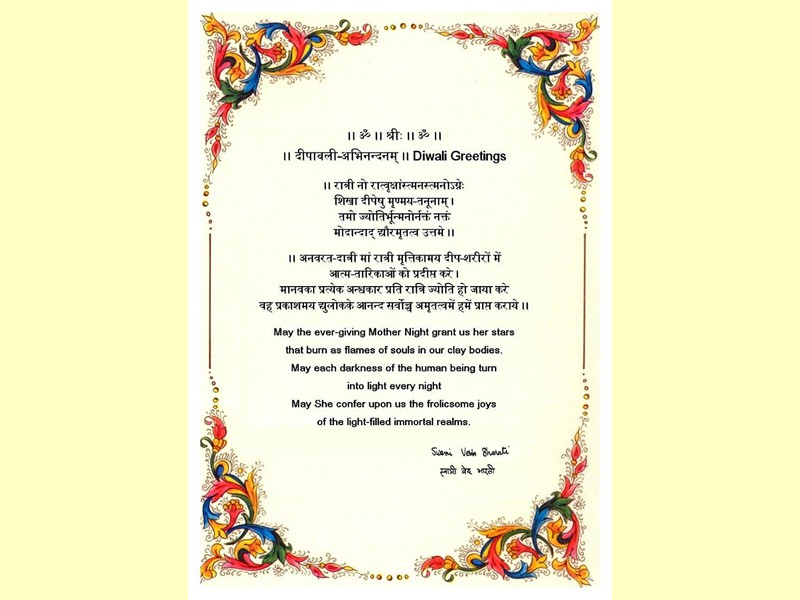 ।। ॐ ।। श्रीः ।। ॐ ।।
।। दीपावली-अभिनन्दनम् ।। Diwali Greetings
।। रात्री नो रात्वृक्षांस्त्मनस्त्मनोऽग्रेः
शिखा दीपेषु मृण्मय-तनूनाम् ।
तमो ज्योतिर्भून्मनोर्नक्तं नक्तं
मोदान्दाद् द्यौरमृतत्व उत्तमे ।।
।। अनवरत-दात्री मां रात्री मृत्तिकामय दीप-शरीरों में
आत्म-तारिकाओं को प्रदीप्त करे ।
मानवका प्रत्येक अन्धकार प्रति रात्रि ज्योति हो जाया करे
वह प्रकाशमय द्युलोकके आनन्द सर्वोच्च अमृतत्वमें हमें प्राप्त कराये ।।
May the ever-giving Mother Night grant us her stars
that burn as flames of souls in our clay bodies.
May each darkness of the human being turn
into light every night
May She confer upon us the frolicsome joys
of the light-filled immortal realms.
Swami Veda Bharati
स्वामी वेद भारती